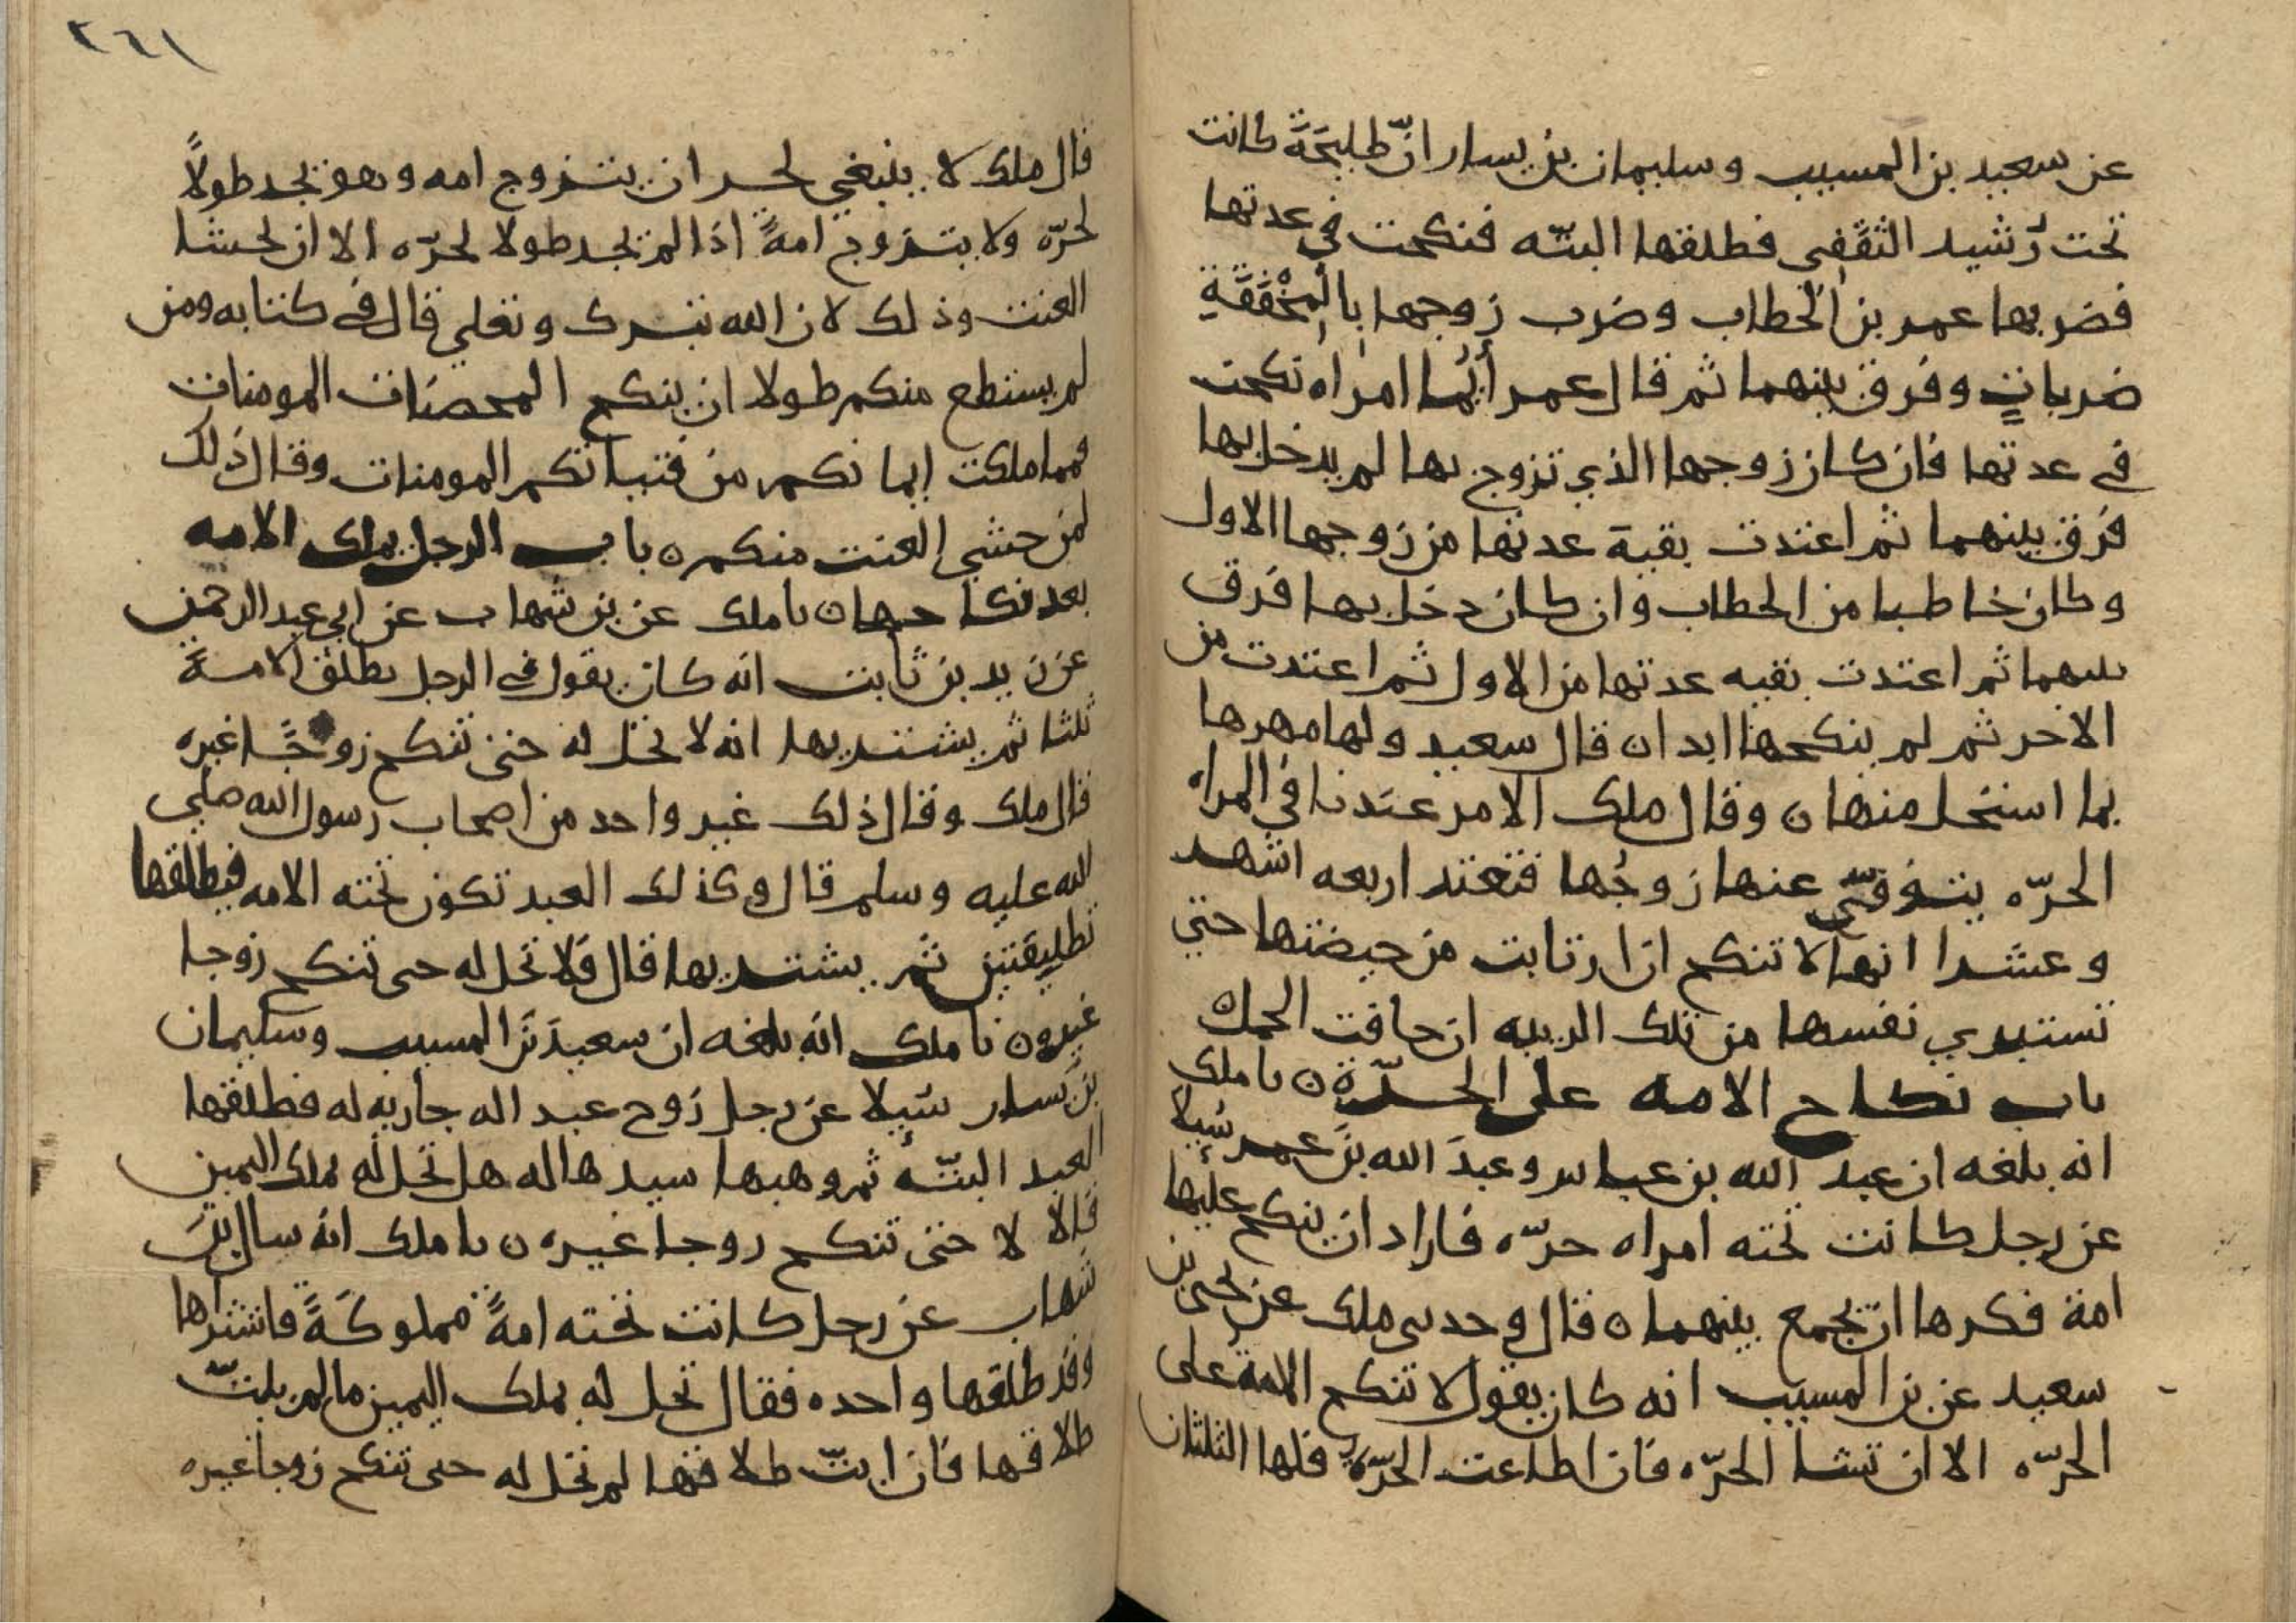 عن سعيد بن المسيب وسليمان بن يسار انّ طليحَةَ كانت
تحت رُشيد الثقَفِي فطلقها البتّه فنكحت في عدتها
فضربها عمر بن الخطاب وضرب زوجها بِالْمِخْفَقَةِ
ضرباتٍ وفرق بينهما ثم قال عمر أيُما امراه نكحت
في عدتها فان كان زوجها الذي تزوج بها لم يدخل بها
فرق بينهما ثم اعتدت بقية عدتها من زوجها الاول
وكان خاطبا من الخطاب وان كان دخل بها فرق
بينهما ثم اعتدت بقيه عدتها من الاول ثم اعتدت من
الاخر ثم لم ينكحها ابدا ن قال سعيد ولها مهرها
بما استحل منها ن وقال ملك الامر عندنا في المراه
الحرّه يتوفّى عنها زوجُها فتعتد اربعه اشهد
وعشرا انها لا تنكح ان ارتابت من حيضتها حتى
تستبري نفسها من تلك الريبه ان خافت الحمل ن
باب نكاح الامه على الحرّة ن نا ملك
انه بلغه ان عبد الله بن عباس وعبدَ الله بنَ عمر سُيلا
عن رجل كانت تحته امراه حرّه فاراد ان ينكح عليها
امة فكرها ان يجمع بينهما ن قال وحدسي ملك عن يحيى بن
سعيد عن بن المسيب انه كان يقول لا تنكح الامة على
الحرّه الا ان تشا الحرّه فان اطاعت الحرّه فلها الثلثان
٢٦١
قال ملك لا ينبغي لحر ان يتزوج امه وهو يجد طولاً
لحرّه ولا يتزوج امةً اذا لم يجد طولا لحرّه الا ان يخشا
العنت وذلك لان الله تبرك وتعلى قال في كتابه ومن
لم يستطع منكم طولا ان ينكح المحصنات المومنات
فمما ملكت ايمانكم من فتياتكم المومنات وقال ذلك
لمن خشي العنت منكم ن باب الرجل يملك الامه
بعد نكاحها ن نا ملك عن بن شهاب عن ابي عبد الرحمن
عن زيد بن ثابت انه كان يقول في الرجل يطلق الامةَ
ثلثا ثم يشتريها انه لا تحل له حتى تنكح زوجًا غيره
قال ملك وقال ذلك غير واحد من اصحاب رسول الله صلى
الله عليه وسلم قال وكذلك العبد تكون تحته الامه فيطلقها
تطليقتين ثم يشتريها قال فلا تحل له حتى تنكح زوجا
غيره ن نا ملك انه بلغه ان سعيدَ بنَ المسيب وسليمان
بنَ يسار سُيلا عن رجل زوج عبد اله جاريه له فطلقها
العبد البتّه ثم وهبها سيدها اله هل تحل له بملك اليمين
قالا لا حتى تنكح زوجا غيره ن نا ملك انه سال بنَ
شهاب عن رجل كانت تحته امةً مملوكةً فاشتراها
وقد طلقها واحده فقال تحل له بملك اليمين ما لم يبتّ
طلاقها فان ابتّ طلاقها لم تحل له حتى تنكح زوجا غيره